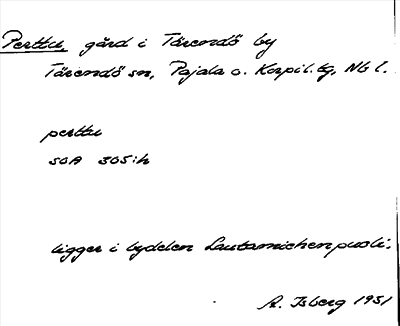 Perttu, gård i Tärendö by
Tärendö sn, Pajala o. Korpil. tg, Nb l.
perttu
SOA 305:h
ligger i bydelen Lautamiehenpuoli.
A. Isberg 1931